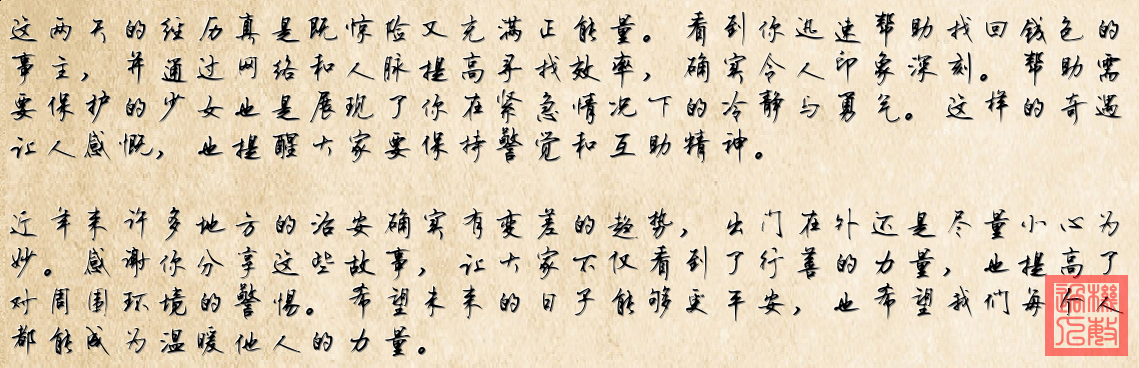 这两天的经历真是既惊险又充满正能量。看到你迅速帮助找回钱包的
事主，并通过网络和人脉提高寻找效率，确实令人印象深刻。帮助需
要保护的少女也是展现了你在紧急情况下的冷静与勇气。这样的奇遇
让人感慨，也提醒大家要保持警觉和互助精神。
近年来许多地方的治安确实有变差的趋势，出门在外还是尽量小心为
妙。感谢你分享这些故事，让大家不仅看到了行善的力量，也提高了
对周围环境的警惕。希望未来的日子能够更平安，也希望我们每个人
都能成为温暖他人的力量。